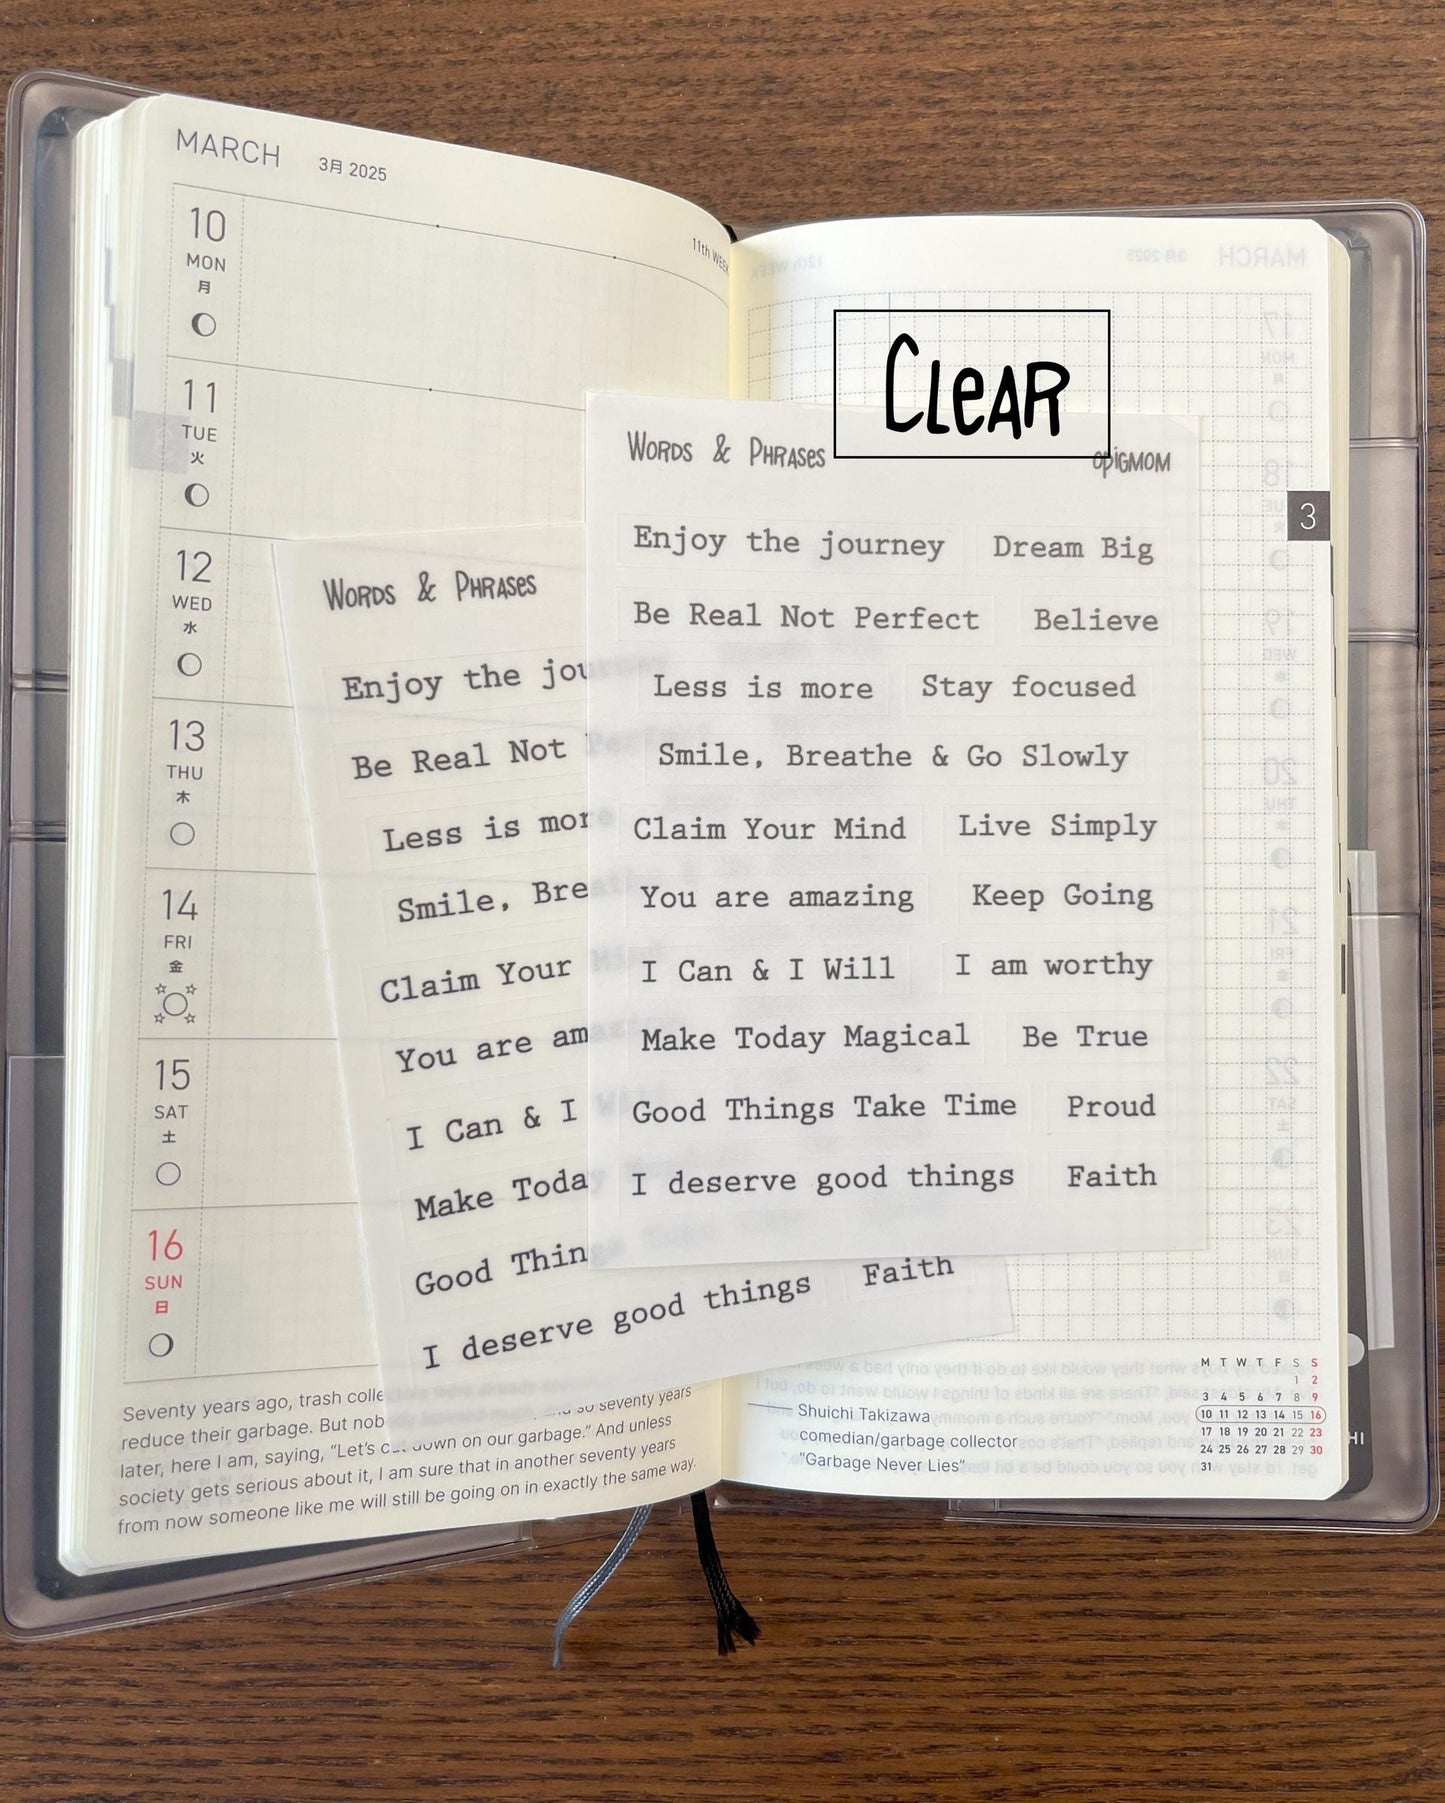 MARCH 3月 2025
11th WEEK
10
MON
月
11
TUE
火
12
WED
水
13
THU
木
14
FRI
金
15
SAT
土
16
SUN
日
Seventy years ago, trash
reduce their garbage. But
so seventy years
later, here I am, saying, “Let’s down on our garbage.” And unless
society gets serious about it, I am sure that in another seventy years
from now someone like me will still be going on in exactly the same way.
WORDS & PHRASES
Enjoy the
Be Real Not
Less is more
Smile,
Claim Your
You are
I Can & I
Make
Good
I deserve good things Faith
CLEAR
WORDS & PHRASES opigmom
Enjoy the journey Dream Big
Be Real Not Perfect Believe
Less is more Stay focused
Smile, Breathe & Go Slowly
Claim Your Mind Live Simply
You are amazing Keep Going
I Can & I Will I am worthy
Make Today Magical Be True
Good Things Take Time Proud
I deserve good things Faith
3
Shuichi Takizawa
comedian/garbage collector
“Garbage Never Lies”
M T W T F S S
1 2
3 4 5 6 7 8 9
10 11 12 13 14 15 16
17 18 19 20 21 22 23
24 25 26 27 28 29 30
31